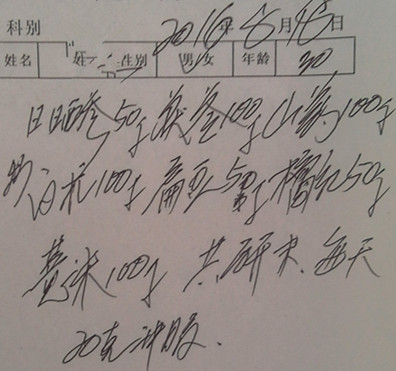 科别 2016年6月16日
姓名 姓 性别 男/女 年龄 30
日晒参50g 茯苓100g 山药100g
炒白术100g 扁豆50g 橘红50g
薏米100g 共研末.每天
20克冲服.